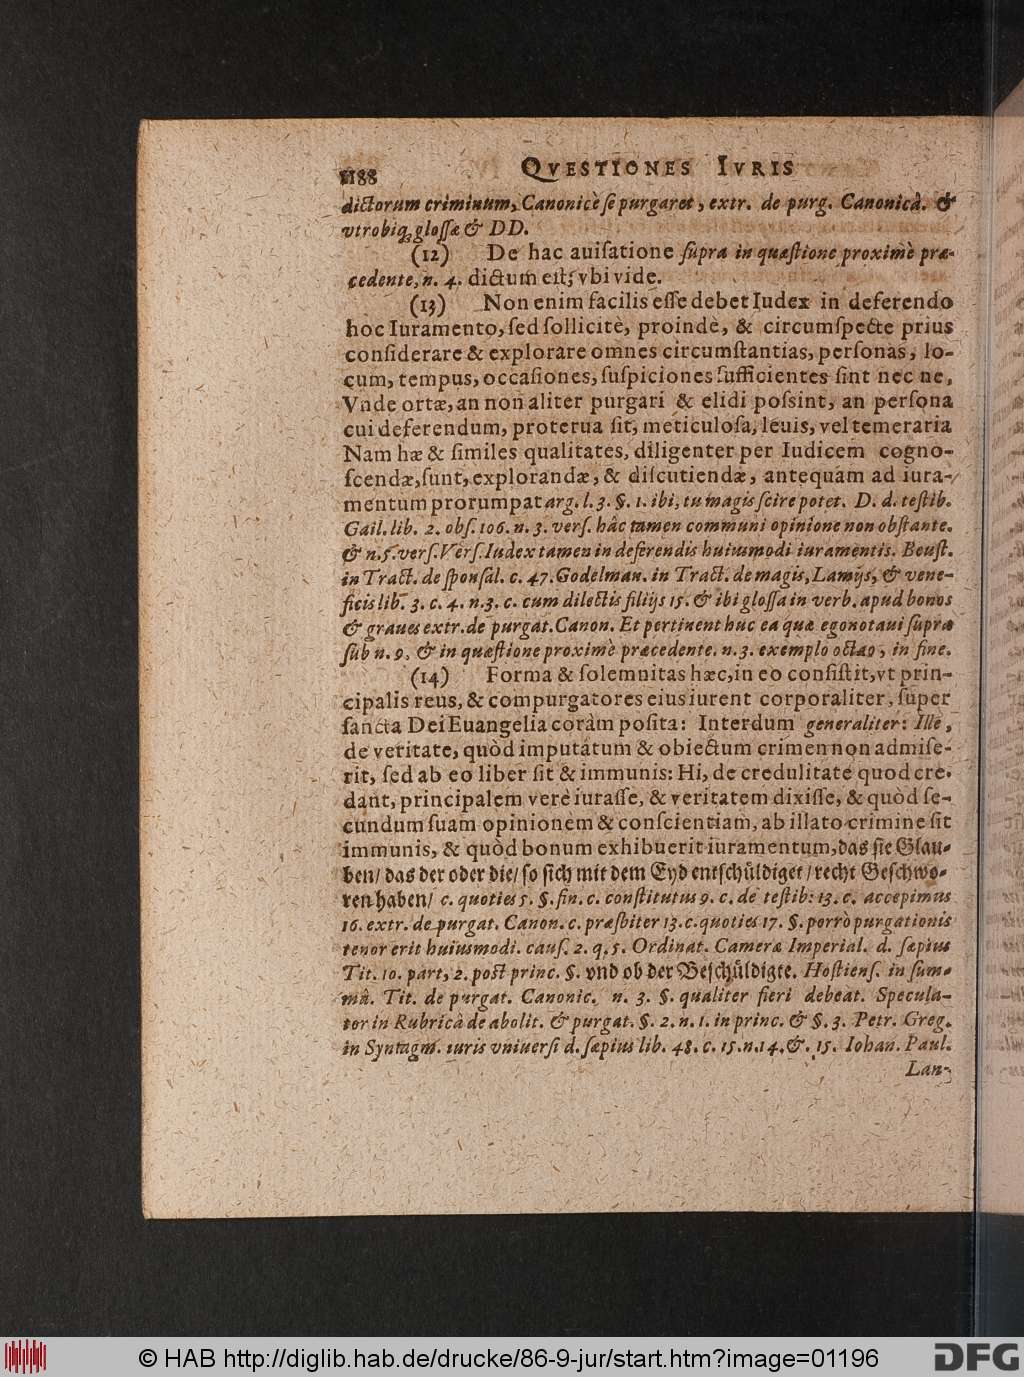 1188 QVESTIONES IVRIS
dictorum criminum, Canonicè ſe purgaret, extr. de purg. Canonicâ. &
vtrobiq; gloſſæ & DD.
(12) De hac auiſatione ſupra in quæſtione proximè præ-
cedente, n. 4. dictum eſt, vbi vide.
(13) Non enim facilis eſſe debet Iudex in deferendo
hoc Iuramento, ſed ſollicitè, proindè, & circumſpecte prius
conſiderare & explorare omnes circumſtantias, perſonas, lo-
cum, tempus, occaſiones, ſuſpiciones ſufficientes ſint nec ne,
Vnde ortæ, an non aliter purgari & elidi poſsint, an perſona
cui deferendum, proterua ſit, meticuloſa, leuis, vel temeraria
Nam hæ & ſimiles qualitates, diligenter per Iudicem cogno-
ſcendæ, ſunt, explorandæ, & diſcutiendæ, antequam ad iura-
mentum prorumpat arg. l. 3. §. 1. ibi, tu magis ſcire potet. D. d. teſtib.
Gail. lib. 2. obſ. 106. n. 3. verſ. hâc tamen communi opinione non obſtante.
& n. 5. verſ. Verſ. Iudex tamen in deferendis huiusmodi iuramentis. Beuſt.
in Tract. de ſponſal. c. 47. Godelman. in Tract. de magis, Lamijs, & vene-
ficis lib. 3. c. 4. n. 3. c. cum dilectis filijs 15. & ibi gloſſa in verb. apud bonos
& graues extr. de purgat. Canon. Et pertinent huc ea quæ ego notaui ſupra
ſub n. 9. & in quæſtione proximè præcedente. n. 3. exemplo octauo, in fine.
(14) Forma & ſolemnitas hæc, in eo conſiſtit, vt prin-
cipalis reus, & compurgatores eius iurent corporaliter, ſuper
ſancta Dei Euangelia coràm poſita: Interdum generaliter: Ille,
de veritate, quòd imputatum & obiectum crimen non admiſe-
rit, ſed ab eo liber ſit & immunis: Hi, de credulitate quod cre-
dant, principalem verè iuraſſe, & veritatem dixiſſe, & quòd ſe-
cundum ſuam opinionem & conſcientiam, ab illato crimine ſit
immunis, & quòd bonum exhibuerit iuramentum, das ſie Glau-
ben/ das der oder die/ ſo ſich mit dem Eyd entſchuͤldiget/ recht Geſchwo-
ren haben/ c. quoties 5. §. fin. c. conſtitutus 9. c. de teſtib: 13. c. accepimus
16. extr. de purgat. Canon. c. præſbiter 13. c. quoties 17. §. porrò purgationis
tenor erit huiusmodi. cauſ. 2. q. 5. Ordinat. Cameræ Imperial. d. ſæpius
Tit. 10. part, 2. post princ. §. vnd ob der Beſchuͤldigte. Hoſtienſ. in ſum-
mâ. Tit. de purgat. Canonic. n. 3. §. qualiter fieri debeat. Specula-
tor in Rubricâ de abolit. & purgat. §. 2. n. 1. in princ. & §. 3. Petr. Greg.
in Syntagm. iuris vniuerſi d. ſæpius lib. 48. c. 15. n. 14. & 15. Iohan. Paul.
Lan-
© HAB http://diglib.hab.de/drucke/86-9-jur/start.htm?image=01196
DFG